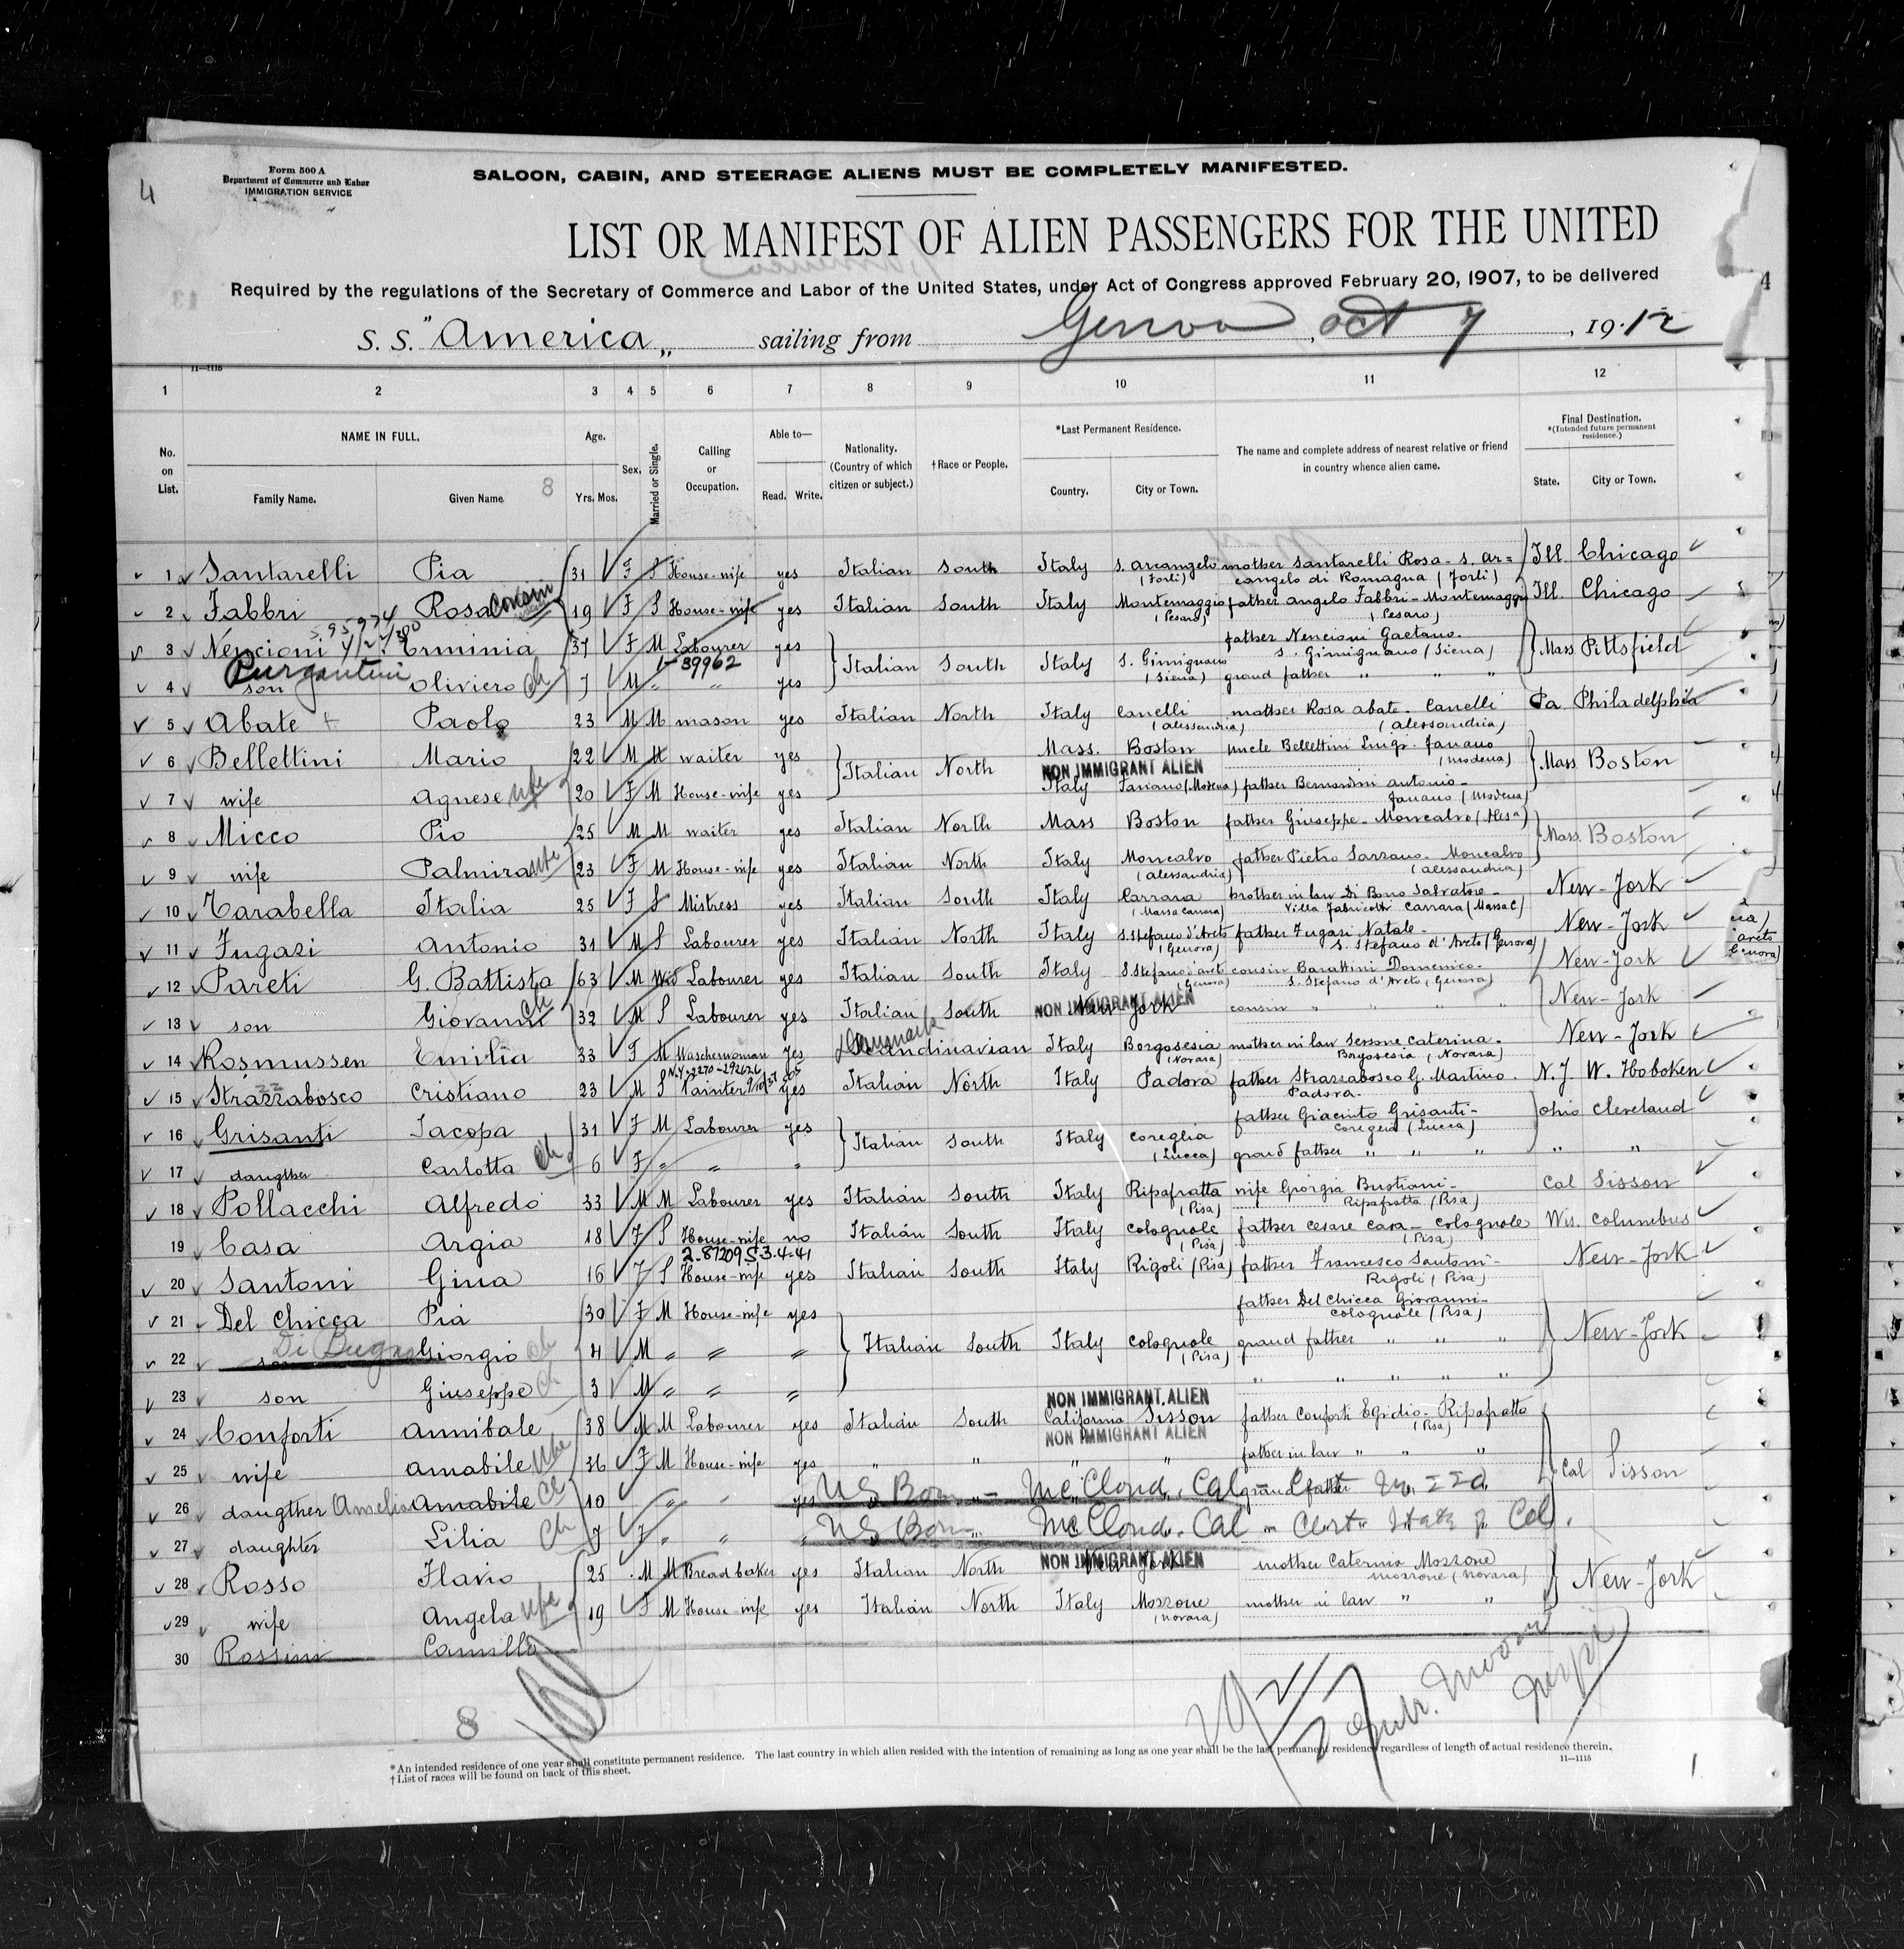 4
Form 500 A
Department of Commerce and Labor
IMMIGRATION SERVICE
SALOON, CABIN, AND STEERAGE ALIENS MUST BE COMPLETELY MANIFESTED.
LIST OR MANIFEST OF ALIEN PASSENGERS FOR THE UNITED
Required by the regulations of the Secretary of Commerce and Labor of the United States, under Act of Congress approved February 20, 1907, to be delivered
S. S. "America" sailing from Genova, Oct 7, 1912
11—1115
1 2 3 4 5 6 7 8 9 10 11 12
No. on List. NAME IN FULL. Family Name. Given Name 8 Age. Yrs. Mos. Sex. Married or Single. Calling or Occupation. Able to— Read. Write. Nationality. (Country of which citizen or subject.) †Race or People. *Last Permanent Residence. Country. City or Town. The name and complete address of nearest relative or friend in country whence alien came. Final Destination. *(Intended future permanent residence.) State. City or Town.
1 Santarelli Pia 31 F S House-wife yes Italian South Italy S. Arcangelo (Forli) mother Santarelli Rosa - S. Ar= cangelo di Romagna (Forli) Ill. Chicago
2 Fabbri Rosa cousin 19 F S House-wife yes Italian South Italy Montemaggio (Pesaro) father Angelo Fabbri - Montemaggio (Pesaro) Ill. Chicago
3 Nencioni Erminia 37 F M Labourer yes father Nencioni Gaetano - S. Gimignano (Siena)
39962
Italian South Italy S. Gimignano (Siena) Mass. Pittsfield
4 son Oliviero ch 7 M " " yes grand father " " "
5 Abate Paolo 23 M M mason yes Italian North Italy Canelli (Alessandria) mother Rosa Abate - Canelli (Alessandria) Pa. Philadelphia
6 Bellettini Mario 22 M M waiter yes Italian North Mass. Boston uncle Bellettini Luigi - Fanano (Modena) Mass. Boston
NON IMMIGRANT ALIEN
7 wife Agnese wife 20 F M House-wife yes Italy Fanano (Modena) father Bernardini Antonio - Fanano (Modena)
8 Micco Pio 25 M M waiter yes Italian North Mass Boston father Giuseppe - Moncalvo (Alesa) Mass. Boston
9 wife Palmira wife 23 F M House-wife yes Italian North Italy Moncalvo (Alessandria) father Pietro Sarzano - Moncalvo (Alessandria)
10 Tarabella Italia 25 F S Mistress yes Italian South Italy Carrara (Massa Carrara) brother in law Di Bono Salvatore - Villa Fabricotti Carrara (Massa C) New-York
11 Fugazi Antonio 31 M S Labourer yes Italian North Italy S. Stefano d'Aveto (Genova) father Fugazi Natale - S. Stefano d'Aveto (Genova) New-York
12 Pareti G. Battista 63 M Wid Labourer yes Italian South Italy S. Stefano d'Aveto (Genova) cousin Barattini Domenico - S. Stefano d'Aveto (Genova) New-York
13 son Giovanni ch 32 M S Labourer yes Italian South New York cousin " " " New-York
NON IMMIGRANT ALIEN
Denmark
14 Rosmussen Emilia 33 F M Wascherwoman yes Scandinavian Italy Borgosesia (Novara) mother in law Sersone Caterina - Borgosesia (Novara) New-York
15 Strazzabosco Cristiano 23 M S Painter yes Italian North Italy Padova father Strazzabosco G. Martino - Padova - N.J. W. Hoboken
16 Grisanti Jacopa 31 F M Labourer yes Italian South Italy Coreglia (Lucca) father Giacinto Grisanti - Coreglia (Lucca) Ohio Cleveland
17 daugther Carlotta ch 6 F " " " grand father " " " " "
18 Pollacchi Alfredo 33 M M Labourer yes Italian South Italy Ripafratta (Pisa) wife Giorgia Bustiani - Ripafratta (Pisa) Cal Sisson
19 Casa Argia 18 F S House-wife no Italian South Italy Colognole (Pisa) father Cesare Casa - Colognole (Pisa) Wis. Columbus
20 Santoni Gina 16 F S House-wife yes Italian South Italy Rigoli (Pisa) father Francesco Santoni - Rigoli (Pisa) New-York
21 Del Chicca Pia 30 F M House-wife yes father Del Chicca Giovanni - Colognole (Pisa)
22 son Giorgio ch 4 M " " " Italian South Italy Colognole (Pisa) grand father " " " New-York
23 son Giuseppe ch 3 M " " " " " " " "
NON IMMIGRANT ALIEN
24 Conforti Annibale 38 M M Labourer yes Italian South California Sisson father Conforti Egidio - Ripafratta (Pisa)
NON IMMIGRANT ALIEN
25 wife Amabile wife 36 F M House-wife yes " " " " father in law " " " Cal Sisson
26 daugther Amelia Amabile ch 10 " " yes US Born - McCloud, Cal - grand father
27 daughter Lilia ch 7 F " " " US Born McCloud, Cal - Cert State of Cal.
28 Rosso Flavio 25 M M Bread baker yes Italian North New York mother Caterina Mozzone Mozzone (Novara) New-York
NON IMMIGRANT ALIEN
29 wife Angela wife 19 F M House-wife yes Italian North Italy Mozzone (Novara) mother in law " "
30 Rossini Camilla
8
*An intended residence of one year shall constitute permanent residence. The last country in which alien resided with the intention of remaining as long as one year shall be the last permanent residence regardless of length of actual residence therein.
†List of races will be found on back of this sheet.
11—1115
1